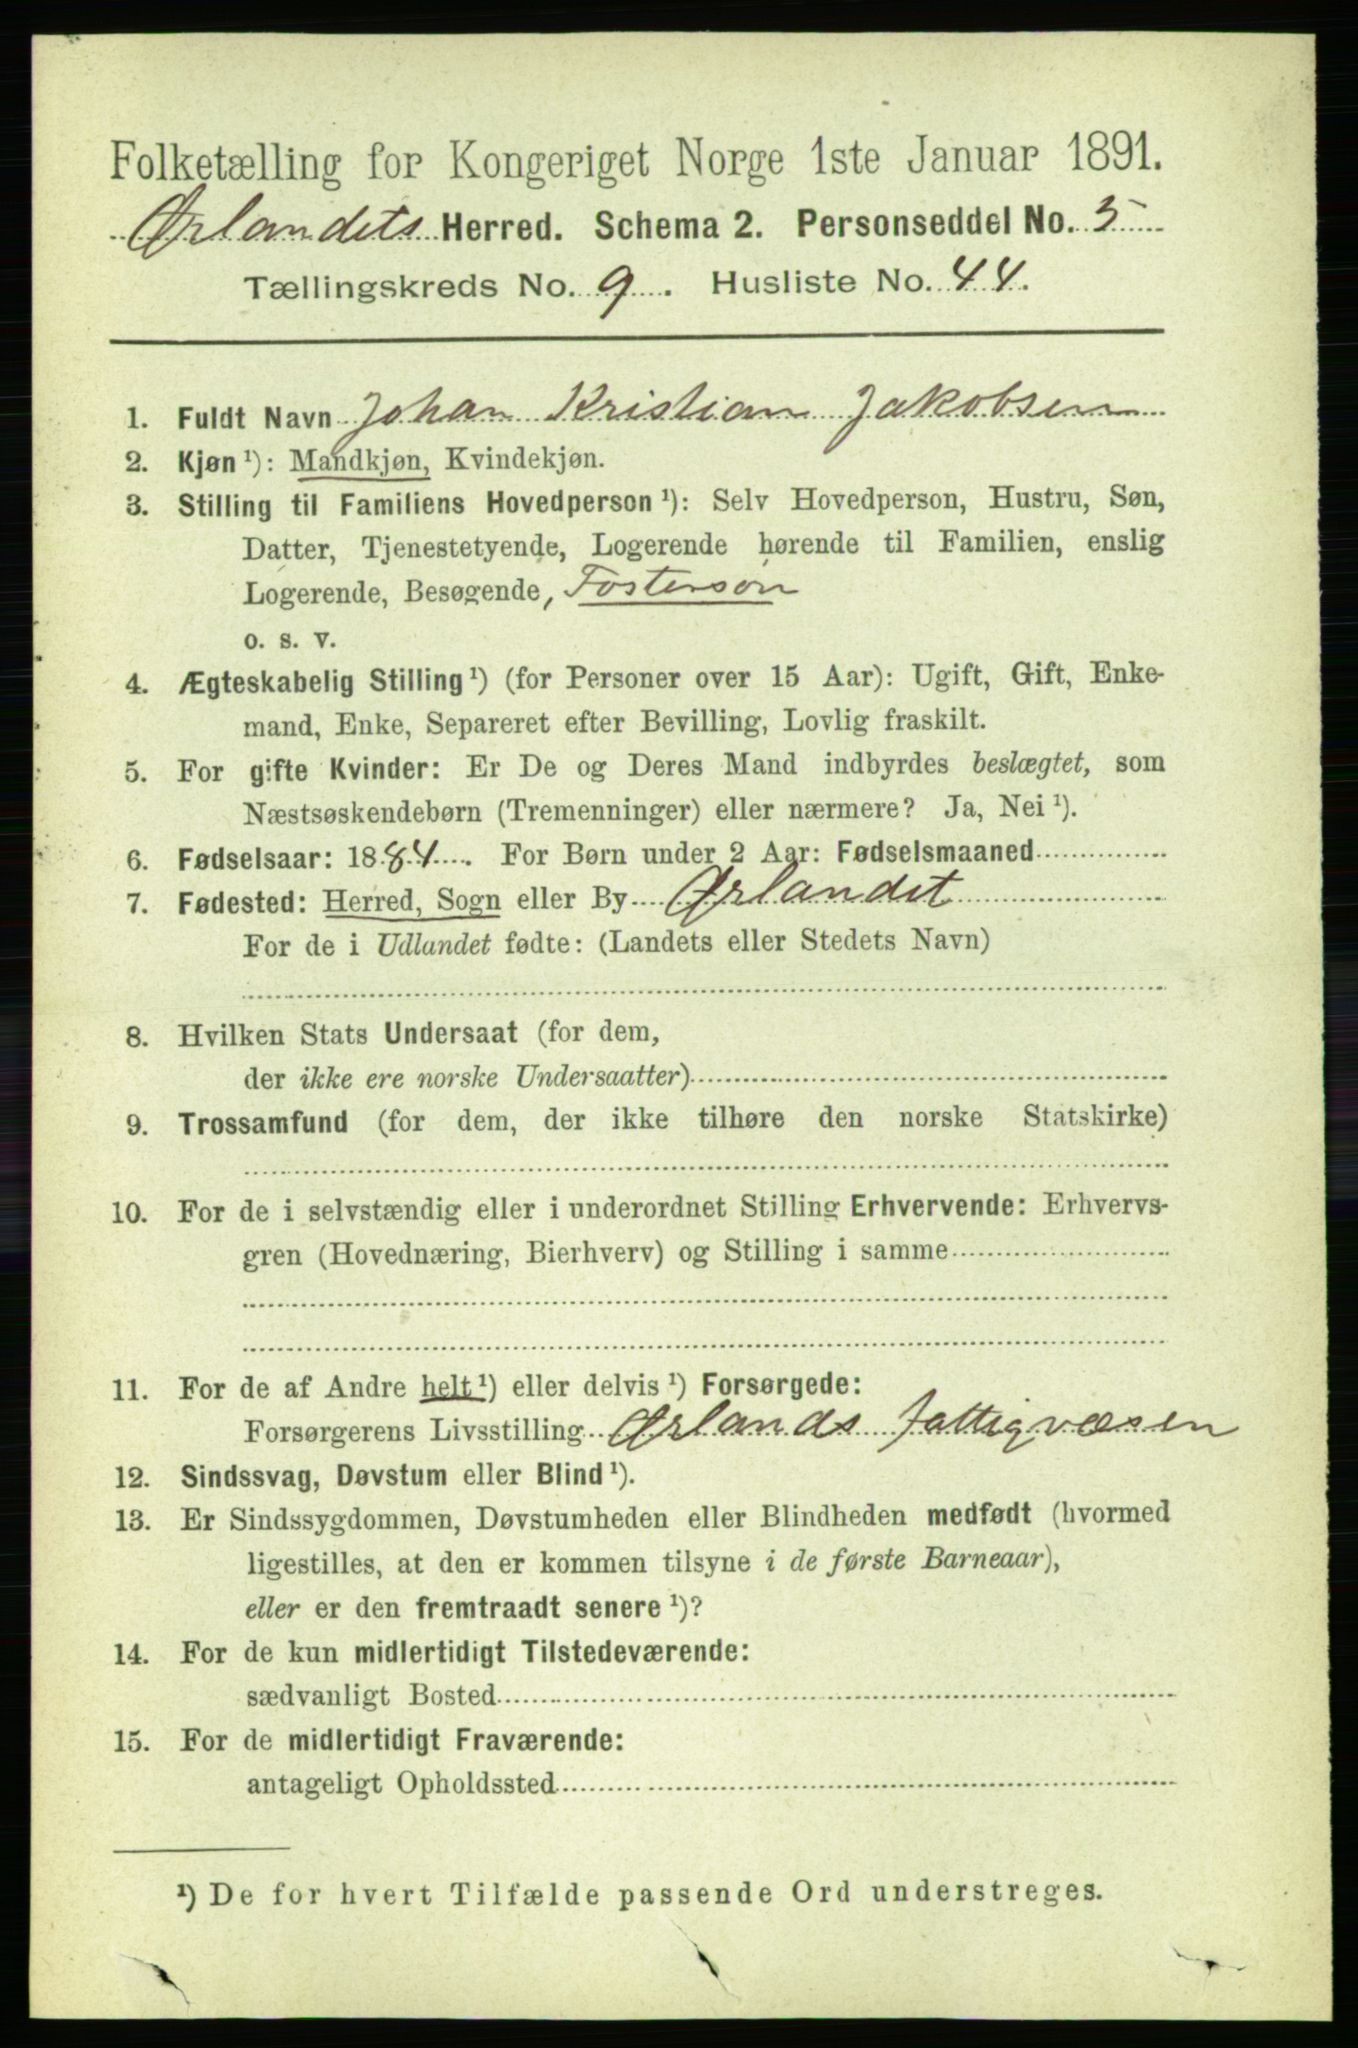 Folketælling for Kongeriget Norge 1ste Januar 1891.
Ørlandets Herred. Schema 2. Personseddel No. 5
Tællingskreds No. 9. Husliste No. 44.
1. Fuldt Navn Johan Kristian Jakobsen
2. Kjøn ¹): Mandkjøn, Kvindekjøn.
3. Stilling til Familiens Hovedperson ¹): Selv Hovedperson, Hustru, Søn,
Datter, Tjenestetyende, Logerende hørende til Familien, enslig
Logerende, Besøgende, Fostersøn
o. s. v.
4. Ægteskabelig Stilling ¹) (for Personer over 15 Aar): Ugift, Gift, Enke-
mand, Enke, Separeret efter Bevilling, Lovlig fraskilt.
5. For gifte Kvinder: Er De og Deres Mand indbyrdes beslægtet, som
Næstsøskendebørn (Tremenninger) eller nærmere? Ja, Nei ¹).
6. Fødselsaar: 1884. For Børn under 2 Aar: Fødselsmaaned
7. Fødested: Herred, Sogn eller By Ørlandet
For de i Udlandet fødte: (Landets eller Stedets Navn)
8. Hvilken Stats Undersaat (for dem,
der ikke ere norske Undersaatter)
9. Trossamfund (for dem, der ikke tilhøre den norske Statskirke)
10. For de i selvstændig eller i underordnet Stilling Erhvervende: Erhvervs-
gren (Hovednæring, Bierhverv) og Stilling i samme
11. For de af Andre helt ¹) eller delvis ¹) Forsørgede:
Forsørgerens Livsstilling Ørlands Fattigvæsen
12. Sindssvag, Døvstum eller Blind ¹).
13. Er Sindssygdommen, Døvstumheden eller Blindheden medfødt (hvormed
ligestilles, at den er kommen tilsyne i de første Barneaar),
eller er den fremtraadt senere ¹)?
14. For de kun midlertidigt Tilstedeværende:
sædvanligt Bosted
15. For de midlertidigt Fraværende:
antageligt Opholdssted
¹) De for hvert Tilfælde passende Ord understreges.